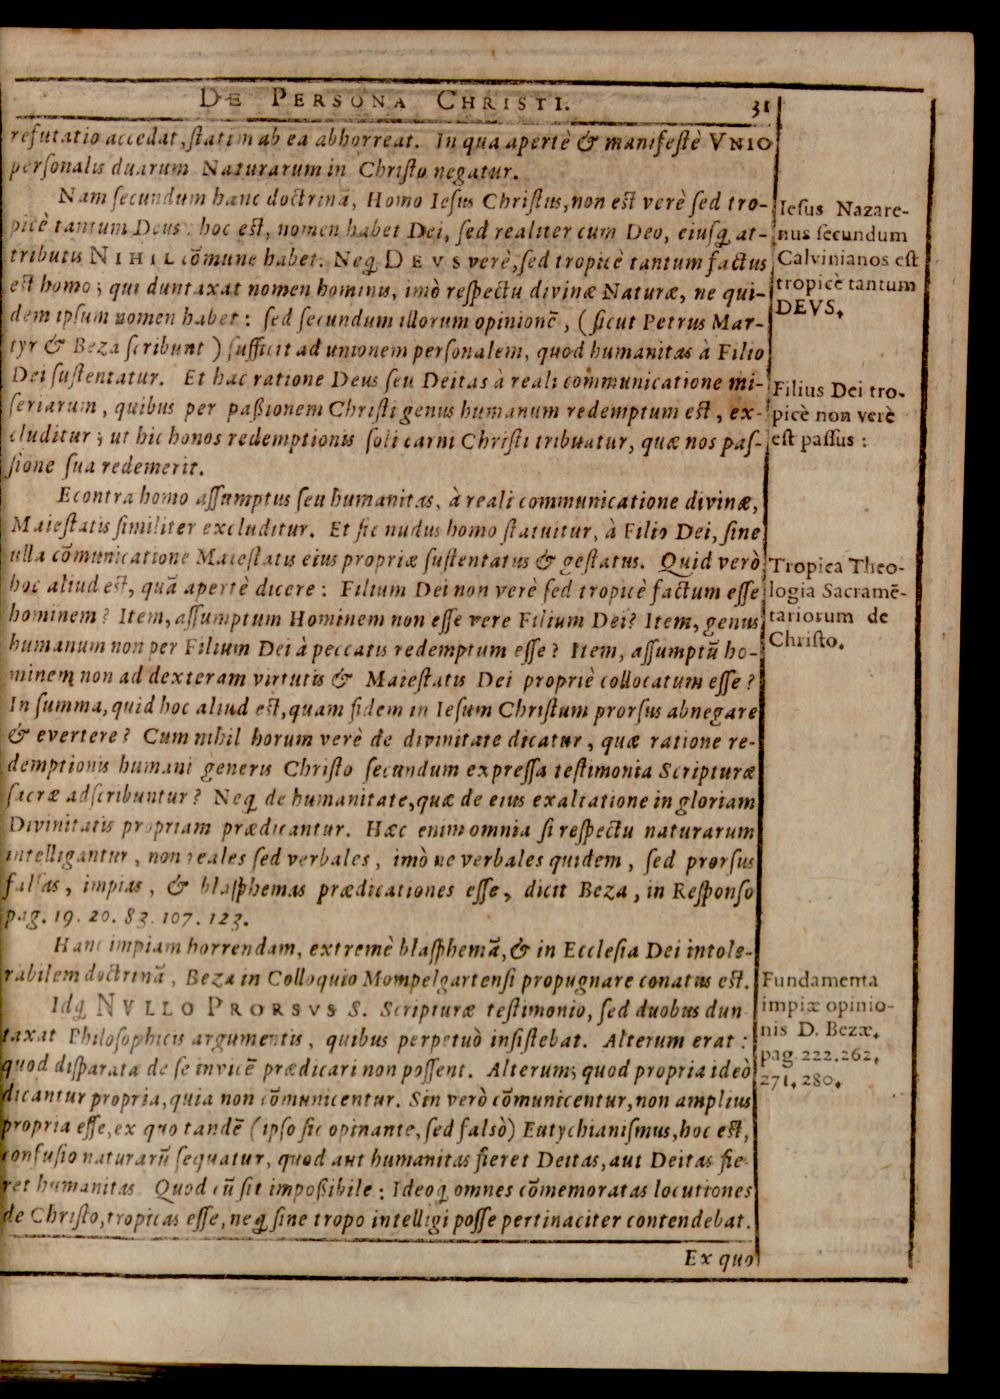 DE PERSONA CHRISTI. 31
refutatio accedat, statim ab ea abhorreat. In qua apertè & manifestè VNIO
personalis duarum Naturarum in Christo negatur.
Nam secundum hanc doctrinā, Homo Iesus Christus, non est verè sed tro-
picè tantum Deus: hoc est, nomen habet Dei, sed realiter cum Deo, eiusq́ at-
tributis NIHIL cōmune habet. Neq́ DEVS verè, sed tropicè tantum factus
est homo; qui duntaxat nomen hominis, imò respectu divinæ Naturæ, ne qui-
dem ipsum nomen habet: sed secundum illorum opinionē, (sicut Petrus Mar-
tyr & Beza scribunt) sufficit ad unionem personalem, quod humanitas à Filio
Dei sustentatur. Et hac ratione Deus seu Deitas à reali communicatione mi-
seriarum, quibus per paßionem Christi genus humanum redemptum est, ex-
cluditur; ut hic honos redemptionis soli carni Christi tribuatur, quæ nos pas-
sione sua redemerit.
Econtra homo assumptus seu humanitas, à reali communicatione divinæ,
Maiestatis similiter excluditur. Et sic nudus homo statuitur, à Filio Dei, sine
ulla cōmunicatione Maiestatis eius propriæ sustentatus & gestatus. Quid verò
hoc aliud est, quā apertè dicere: Filium Dei non verè sed tropicè factum esse
hominem? Item, assumptum Hominem non esse vere Filium Dei? Item, genus
humanum non per Filium Dei à peccatis redemptum esse? Item, assumptū ho-
minem non ad dexteram virtutis & Maiestatis Dei propriè collocatum esse?
In summa, quid hoc aliud est, quam fidem in Iesum Christum prorsus abnegare
& evertere? Cum nihil horum verè de divinitate dicatur, quæ ratione re-
demptionis humani generis Christo secundum expressa testimonia Scripturæ
sacræ adscribuntur? Neq́ de humanitate, quæ de eius exaltatione in gloriam
Divinitatis propriam prædicantur. Hæc enim omnia si respectu naturarum
intelligantur, non reales sed verbales, imò ne verbales quidem, sed prorsus
falsas, impias, & blasphemas prædicationes esse, dicit Beza, in Responso
pag. 19. 20. 83. 107. 123.
Hanc impiam horrendam, extremè blasphemā, & in Ecclesia Dei intole-
rabilem doctrinā, Beza in Colloquio Mompelgartensi propugnare conatus est.
Idq́ NVLLO PRORSVS S. Scripturæ testimonio, sed duobus dun
taxat Philosophicis argumentis, quibus perpetuò insistebat. Alterum erat:
quod disparata de se invicē prædicari non possent. Alterum; quod propria ideò
dicantur propria, quia non cōmunicentur. Sin verò cōmunicentur, non amplius
propria esse, ex quo tandē (ipso sic opinante, sed falsò) Eutychianismus, hoc est,
confusio naturarū sequatur, quod aut humanitas fieret Deitas, aut Deitas fie-
ret humanitas. Quod cū sit impoßibile: Ideoq́ omnes cōmemoratas locutiones
de Christo, tropicas esse, neq́ sine tropo intelligi posse pertinaciter contendebat.
Ex quo
Iesus Nazare-
nus secundum
Calvinianos est
tropicè tantum
DEVS.
Filius Dei tro-
picè non verè
est passus:
Tropica Theo-
logia Sacramē-
tariorum de
Christo.
Fundamenta
impiæ opinio-
nis D. Bezæ.
pag. 222. 262.
271. 280.